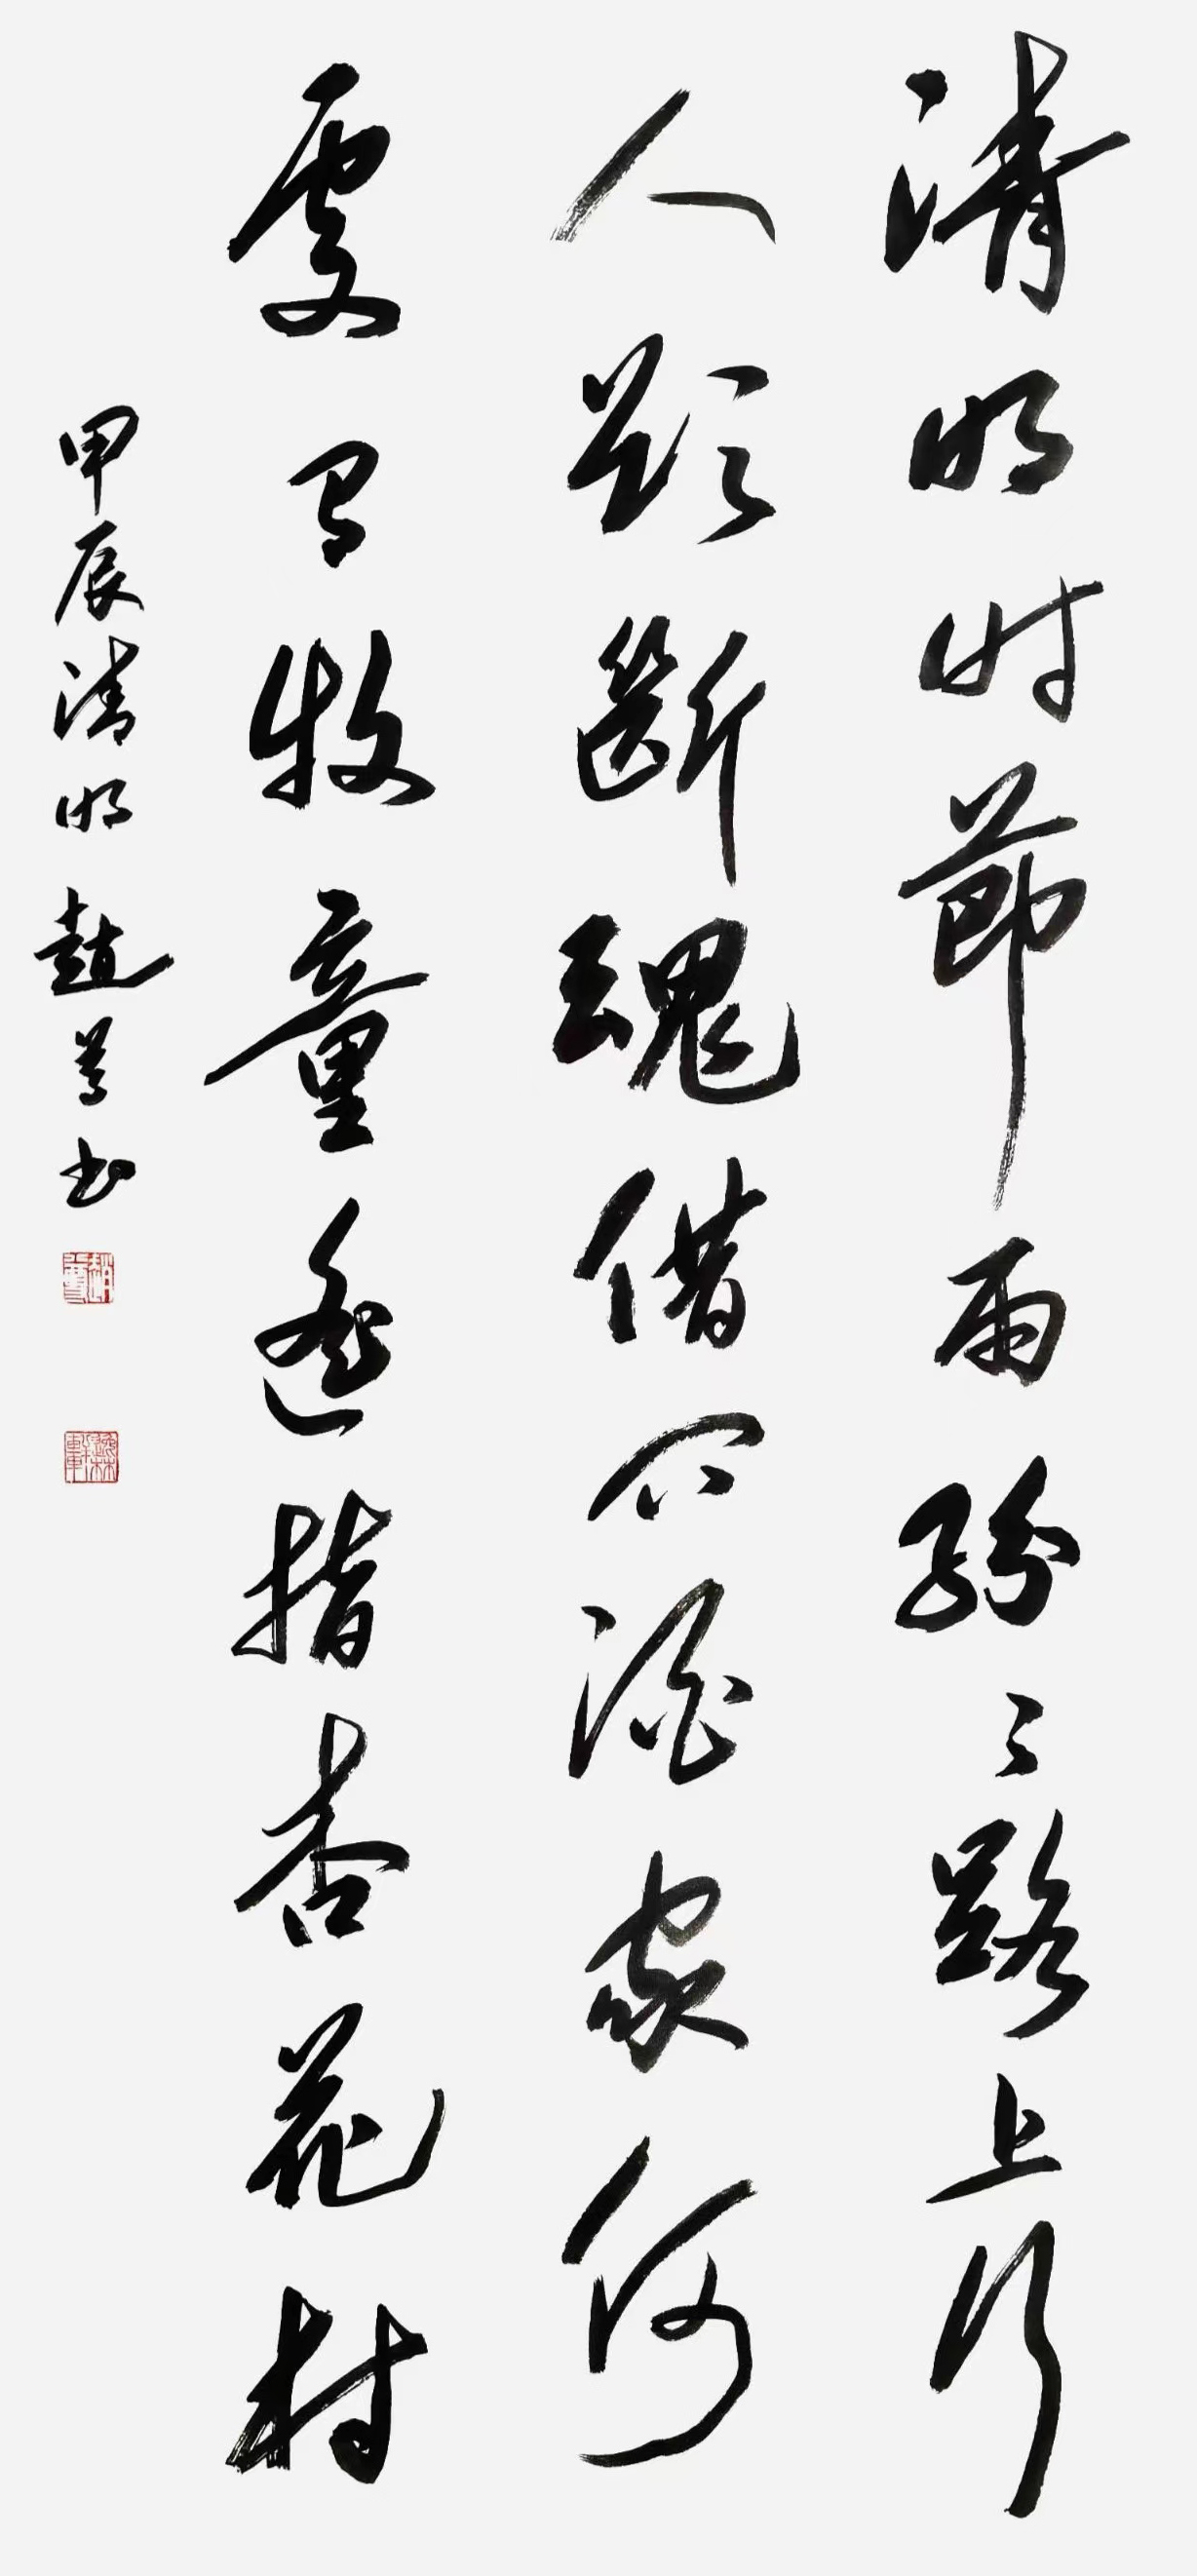 清明时節雨紛〻路上行
人欲斷魂借问酒家何
處有牧童遙指杏花村
甲辰清明趙書